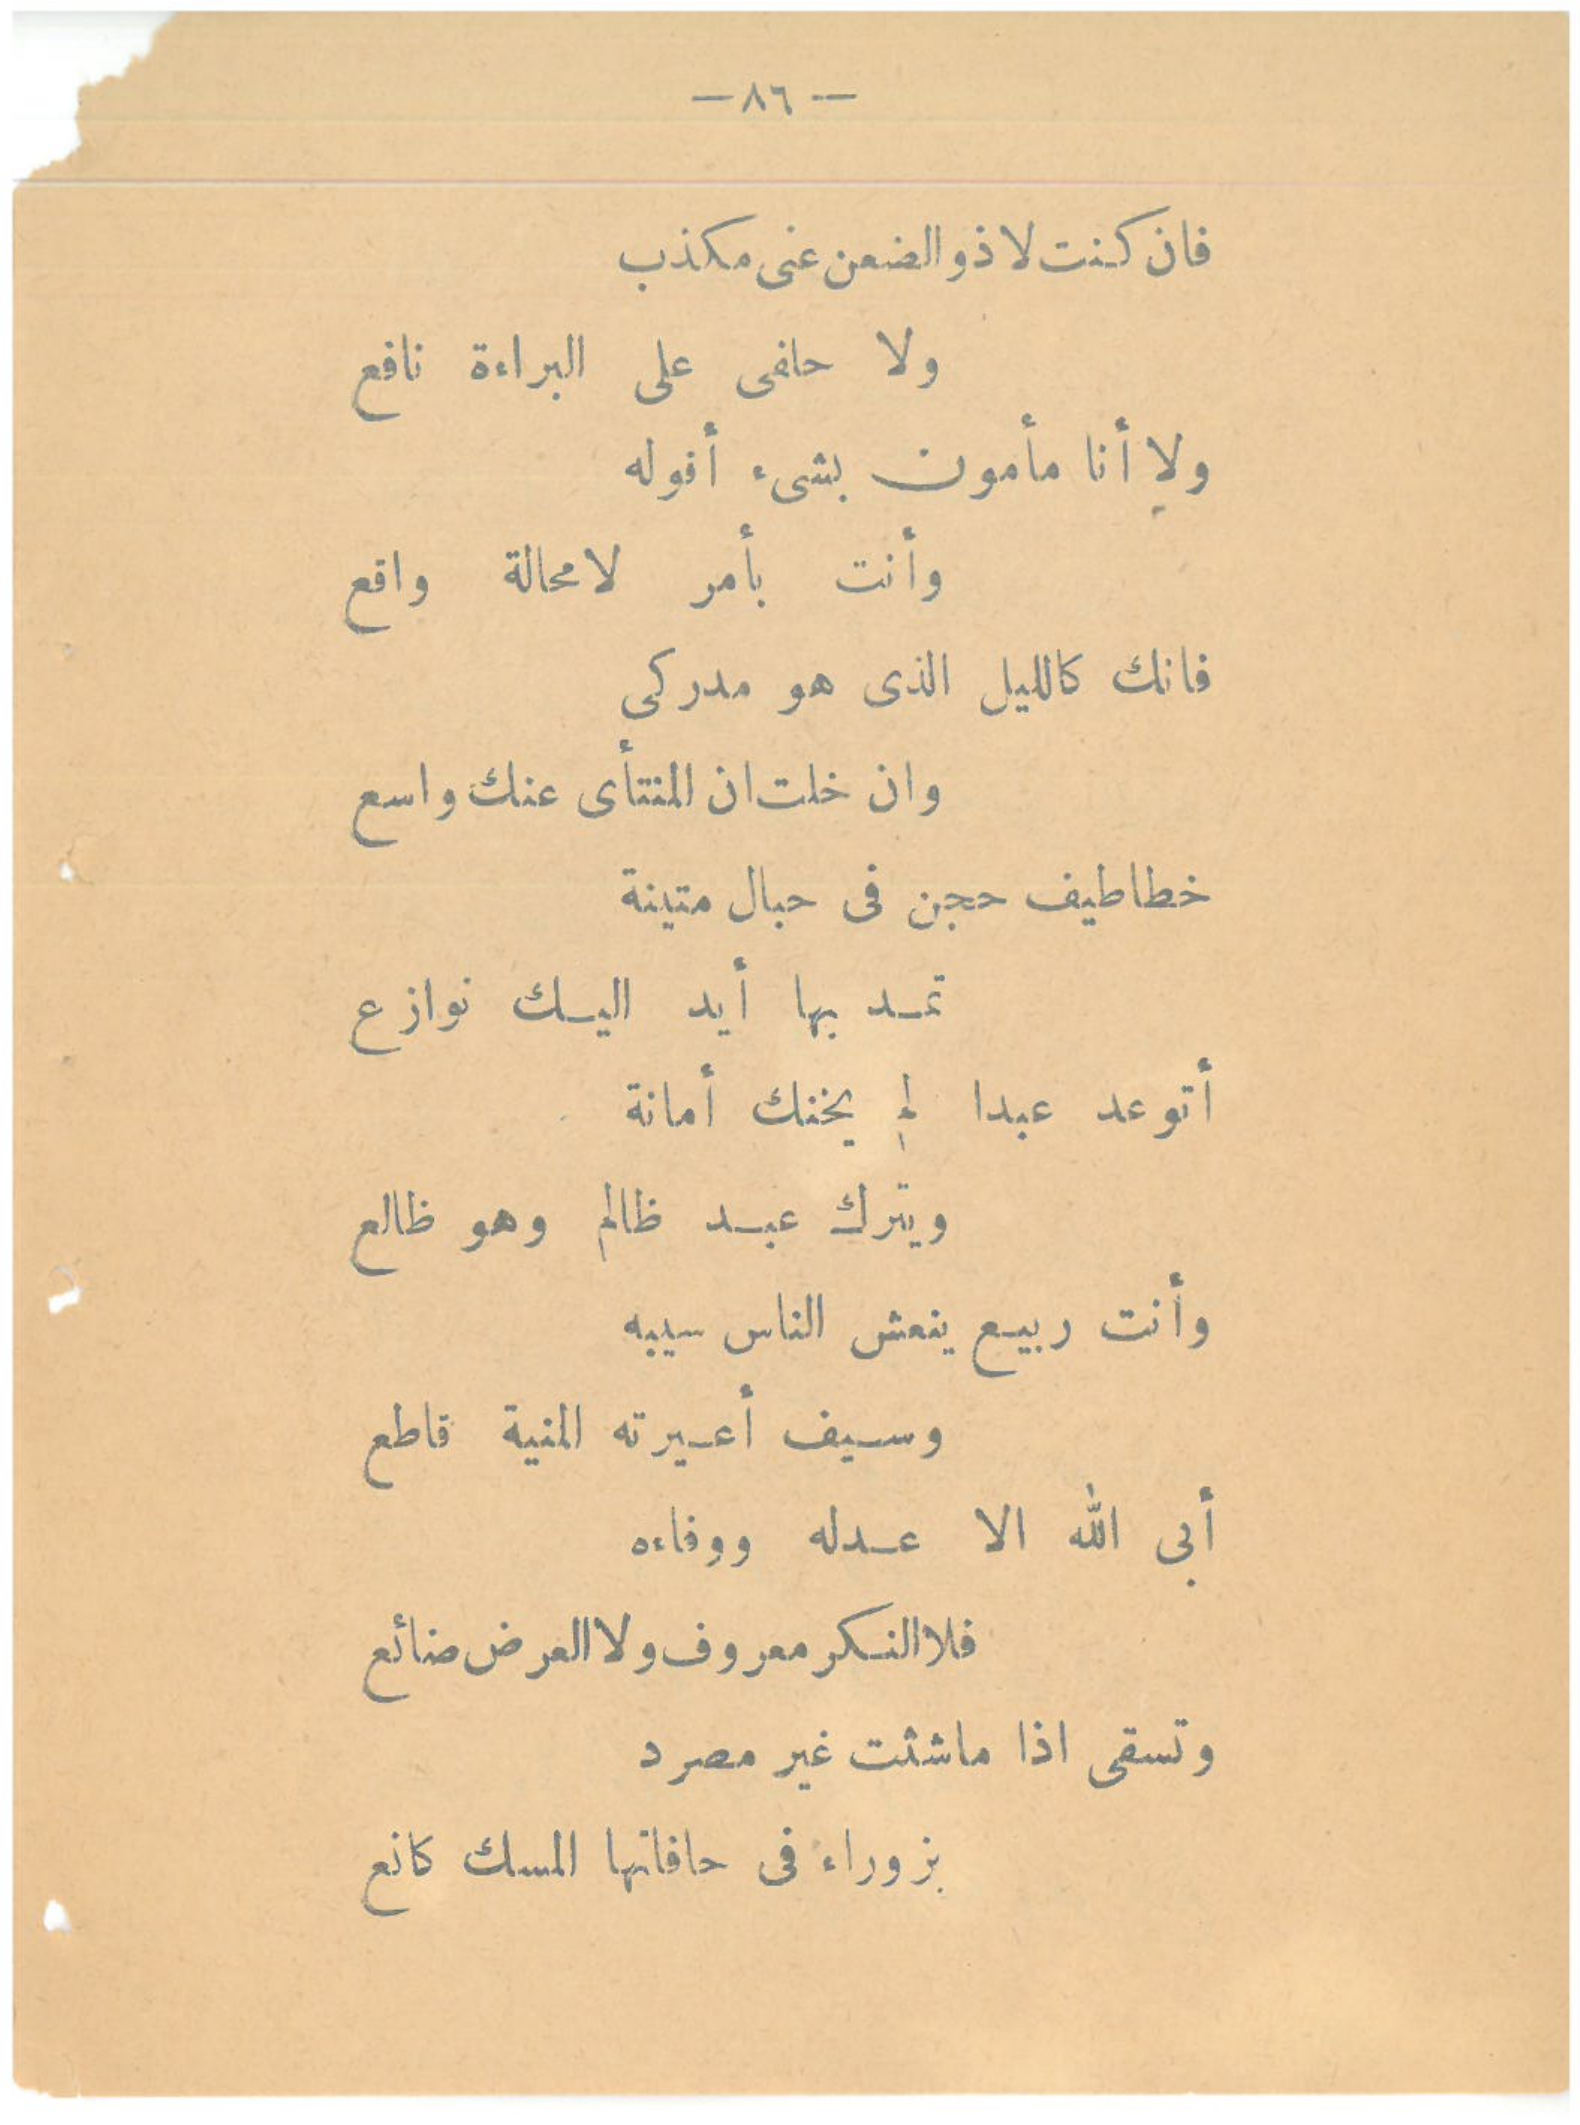 — ٨٦ —
فان كنت لا ذو الضعن عنى مكذب
ولا حلفى على البراءة نافع
ولا أنا مأمون بشىء أقوله
وأنت بأمر لا محالة واقع
فانك كالليل الذى هو مدركى
وان خلت ان المنتأى عنك واسع
خطاطيف حجن فى حبال متينة
تمد بها أيد اليك نوازع
أتوعد عبدا لم يخنك أمانة
ويترك عبد ظالم وهو ظالع
وأنت ربيع ينعش الناس سيبه
وسيف أعيرته المنية قاطع
أبى الله الا عدله ووفاءه
فلا النكر معروف ولا العرض ضائع
وتسقى اذا ماشئت غير مصرد
بزوراء فى حافاتها المسك كانع